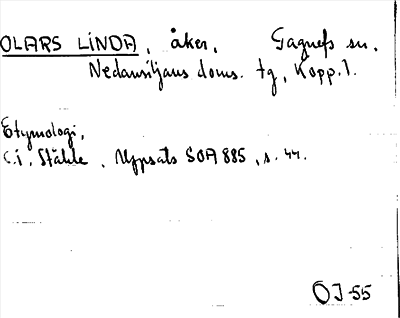 OLARS LINDA, åker, Gagnefs sn,
Nedansiljans doms. tg, Kopp. l.
Etymologi,
C.I. Ståhle, Uppsats SOA 885, s. 44.
ÖJ 55